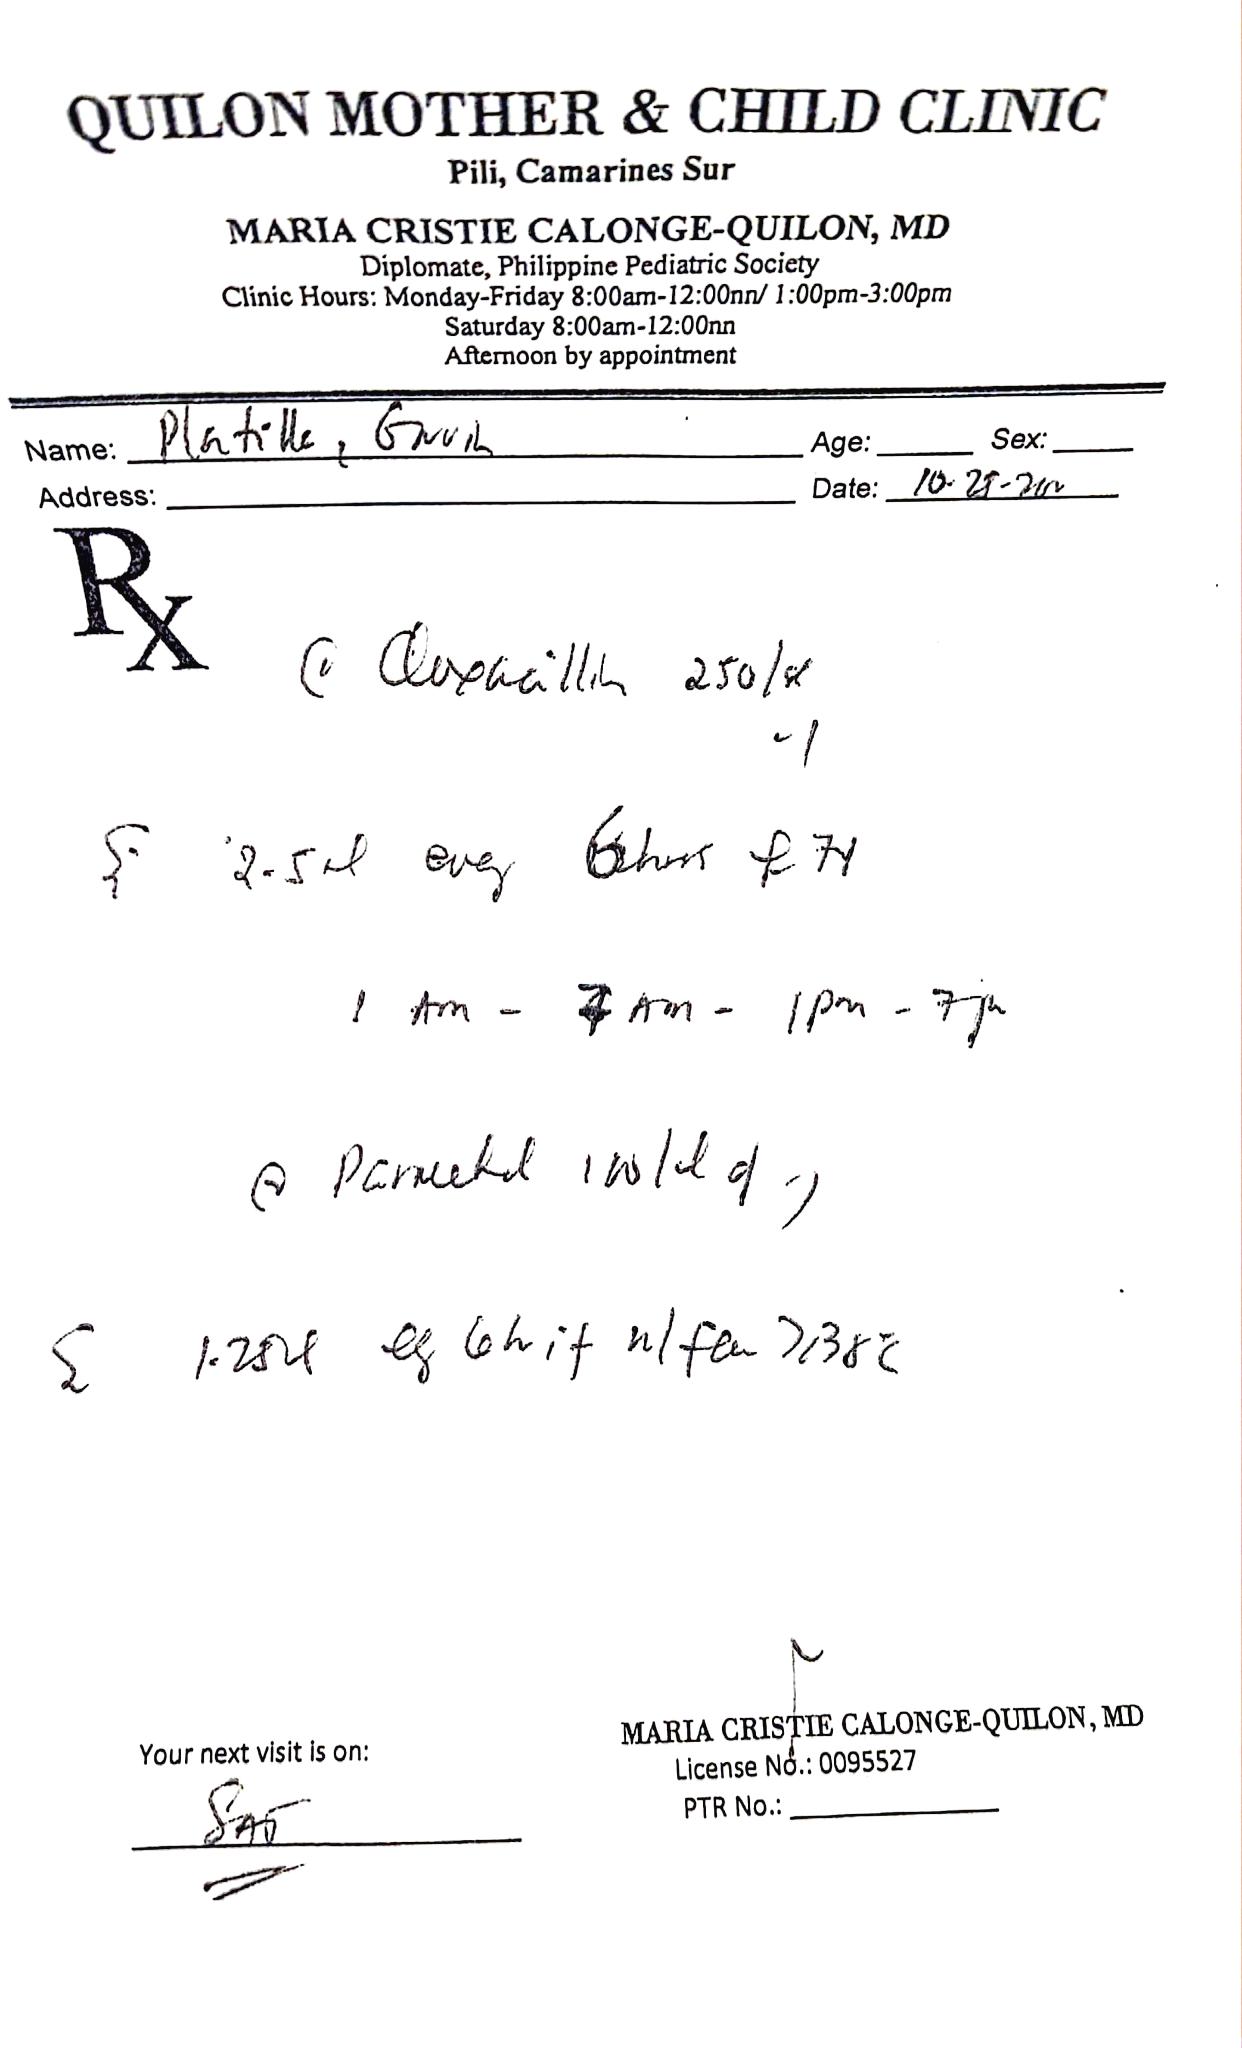 QUILON MOTHER & CHILD CLINIC
Pili, Camarines Sur
MARIA CRISTIE CALONGE-QUILON, MD
Diplomate, Philippine Pediatric Society
Clinic Hours: Monday-Friday 8:00am-12:00nn/ 1:00pm-3:00pm
Saturday 8:00am-12:00nn
Afternoon by appointment
Name: Platilla, Age: Sex:
Address: Date:
Rx
Cloxacillin 250/5ml
2.5ml every 6hours
1 Am - 7 Am - 1pm - 7pm
Paracetamol 100/ml
1.25ml 6h if w/ fever 38C
MARIA CRISTIE CALONGE-QUILON, MD
Your next visit is on: License No.: 0095527
PTR No.:
SAT